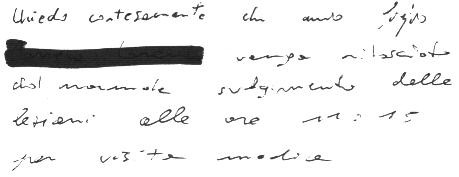 Chiedo cortesemente che mio figlio
venga rilasciato
dal normale svolgimento delle
lezioni alle ore 11:15
per visita medica